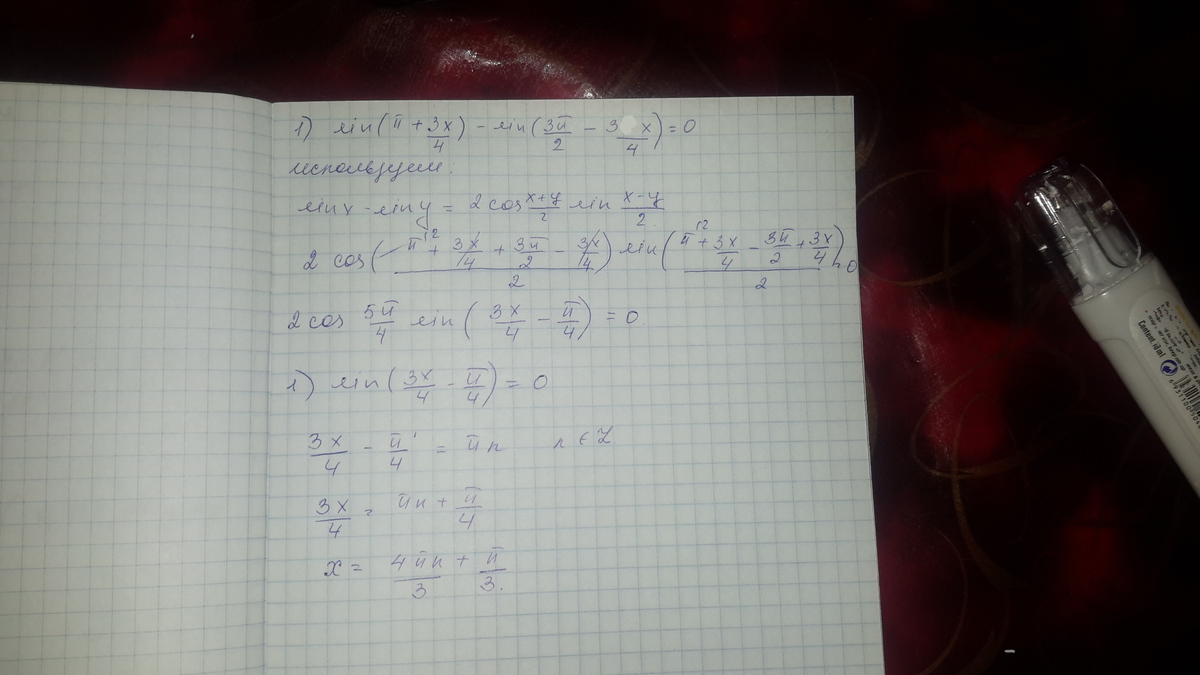 1) sin(π + 3x/4) - sin(3π/2 - 3x/4) = 0
используем:
sin x - sin y = 2 cos x+y/2 sin x-y/2
2 cos( π/2 + 3x/4 + 3π/2 - 3x/4 / 2 ) sin( π/2 + 3x/4 - 3π/2 + 3x/4 / 2 ) = 0
2 cos 5π/4 sin( 3x/4 - π/4 ) = 0
1) sin( 3x/4 - π/4 ) = 0
3x/4 - π/4 = πn n ∈ Z
3x/4 = πn + π/4
x = 4πn/3 + π/3.
Content: 18 ml